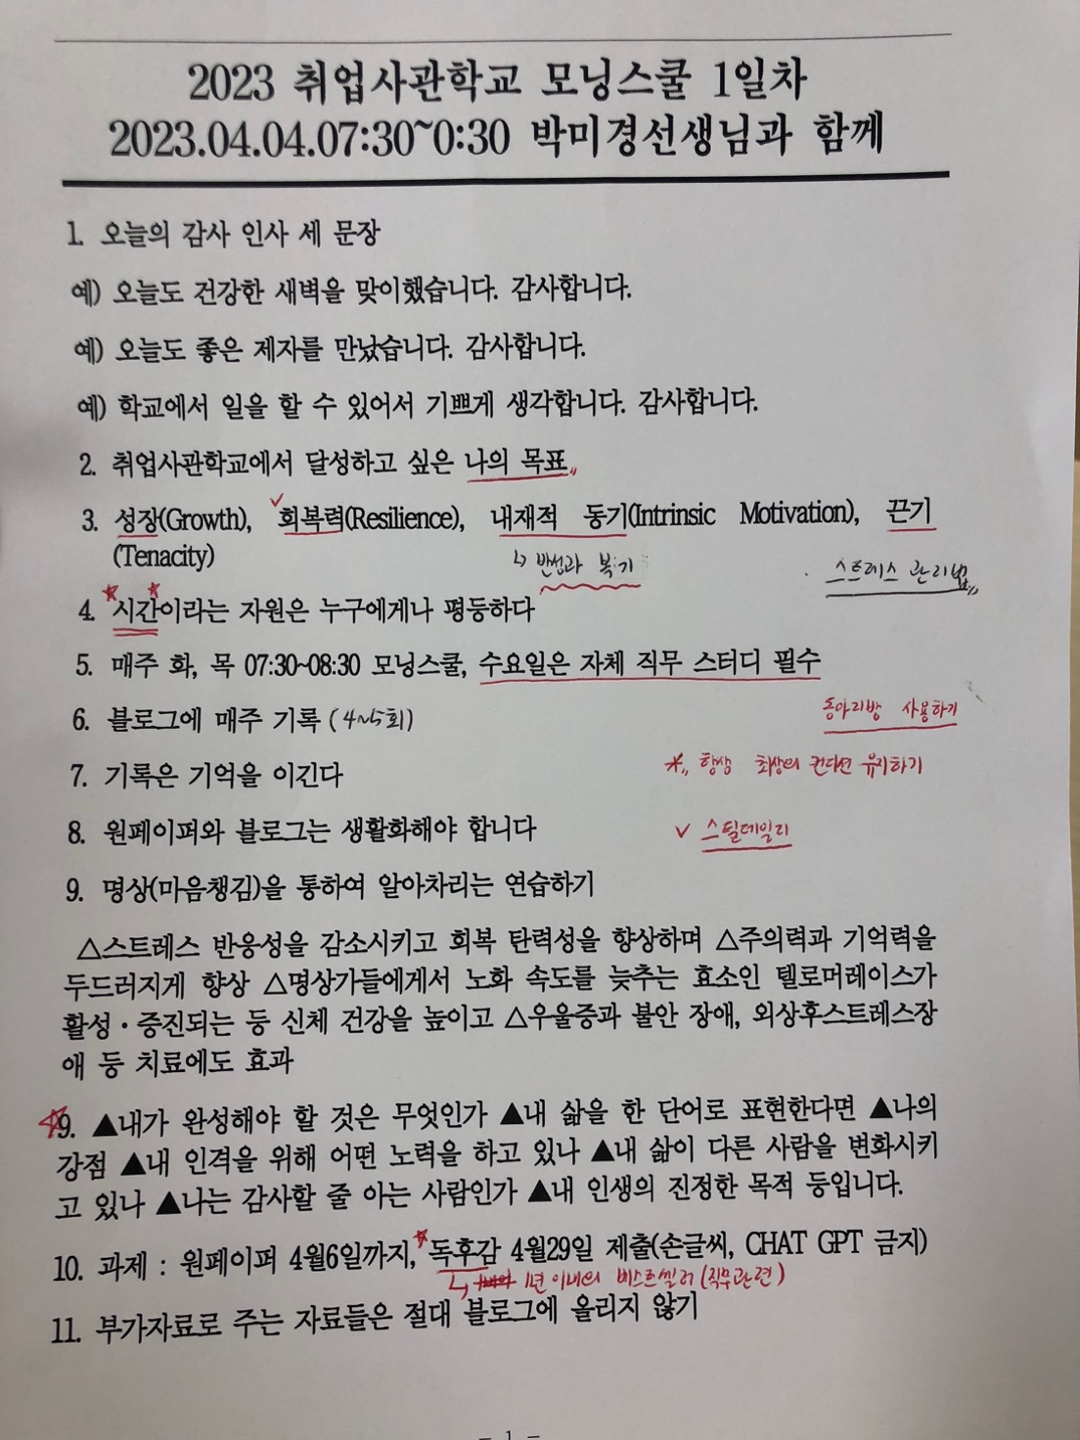 2023 취업사관학교 모닝스쿨 1일차
2023.04.04.07:30~0:30 박미경선생님과 함께
1. 오늘의 감사 인사 세 문장
예) 오늘도 건강한 새벽을 맞이했습니다. 감사합니다.
예) 오늘도 좋은 제자를 만났습니다. 감사합니다.
예) 학교에서 일을 할 수 있어서 기쁘게 생각합니다. 감사합니다.
2. 취업사관학교에서 달성하고 싶은 나의 목표
3. 성장(Growth), 회복력(Resilience), 내재적 동기(Intrinsic Motivation), 끈기
(Tenacity)
↳ 반성과 복기
스트레스 관리법
4. 시간이라는 자원은 누구에게나 평등하다
5. 매주 화, 목 07:30~08:30 모닝스쿨, 수요일은 자체 직무 스터디 필수
6. 블로그에 매주 기록 (4~5회)
동아리방 사용하기
7. 기록은 기억을 이긴다
* 항상 최상의 컨디션 유지하기
8. 원페이퍼와 블로그는 생활화해야 합니다
✓ 스틸데일리
9. 명상(마음챙김)을 통하여 알아차리는 연습하기
△스트레스 반응성을 감소시키고 회복 탄력성을 향상하며 △주의력과 기억력을
두드러지게 향상 △명상가들에게서 노화 속도를 늦추는 효소인 텔로머레이스가
활성·증진되는 등 신체 건강을 높이고 △우울증과 불안 장애, 외상후스트레스장
애 등 치료에도 효과
9. ▲내가 완성해야 할 것은 무엇인가 ▲내 삶을 한 단어로 표현한다면 ▲나의
강점 ▲내 인격을 위해 어떤 노력을 하고 있나 ▲내 삶이 다른 사람을 변화시키
고 있나 ▲나는 감사할 줄 아는 사람인가 ▲내 인생의 진정한 목적 등입니다.
10. 과제 : 원페이퍼 4월6일까지, 독후감 4월29일 제출(손글씨, CHAT GPT 금지)
↳ 1년 이내의 베스트셀러 (직무관련)
11. 부가자료로 주는 자료들은 절대 블로그에 올리지 않기
- 1 -